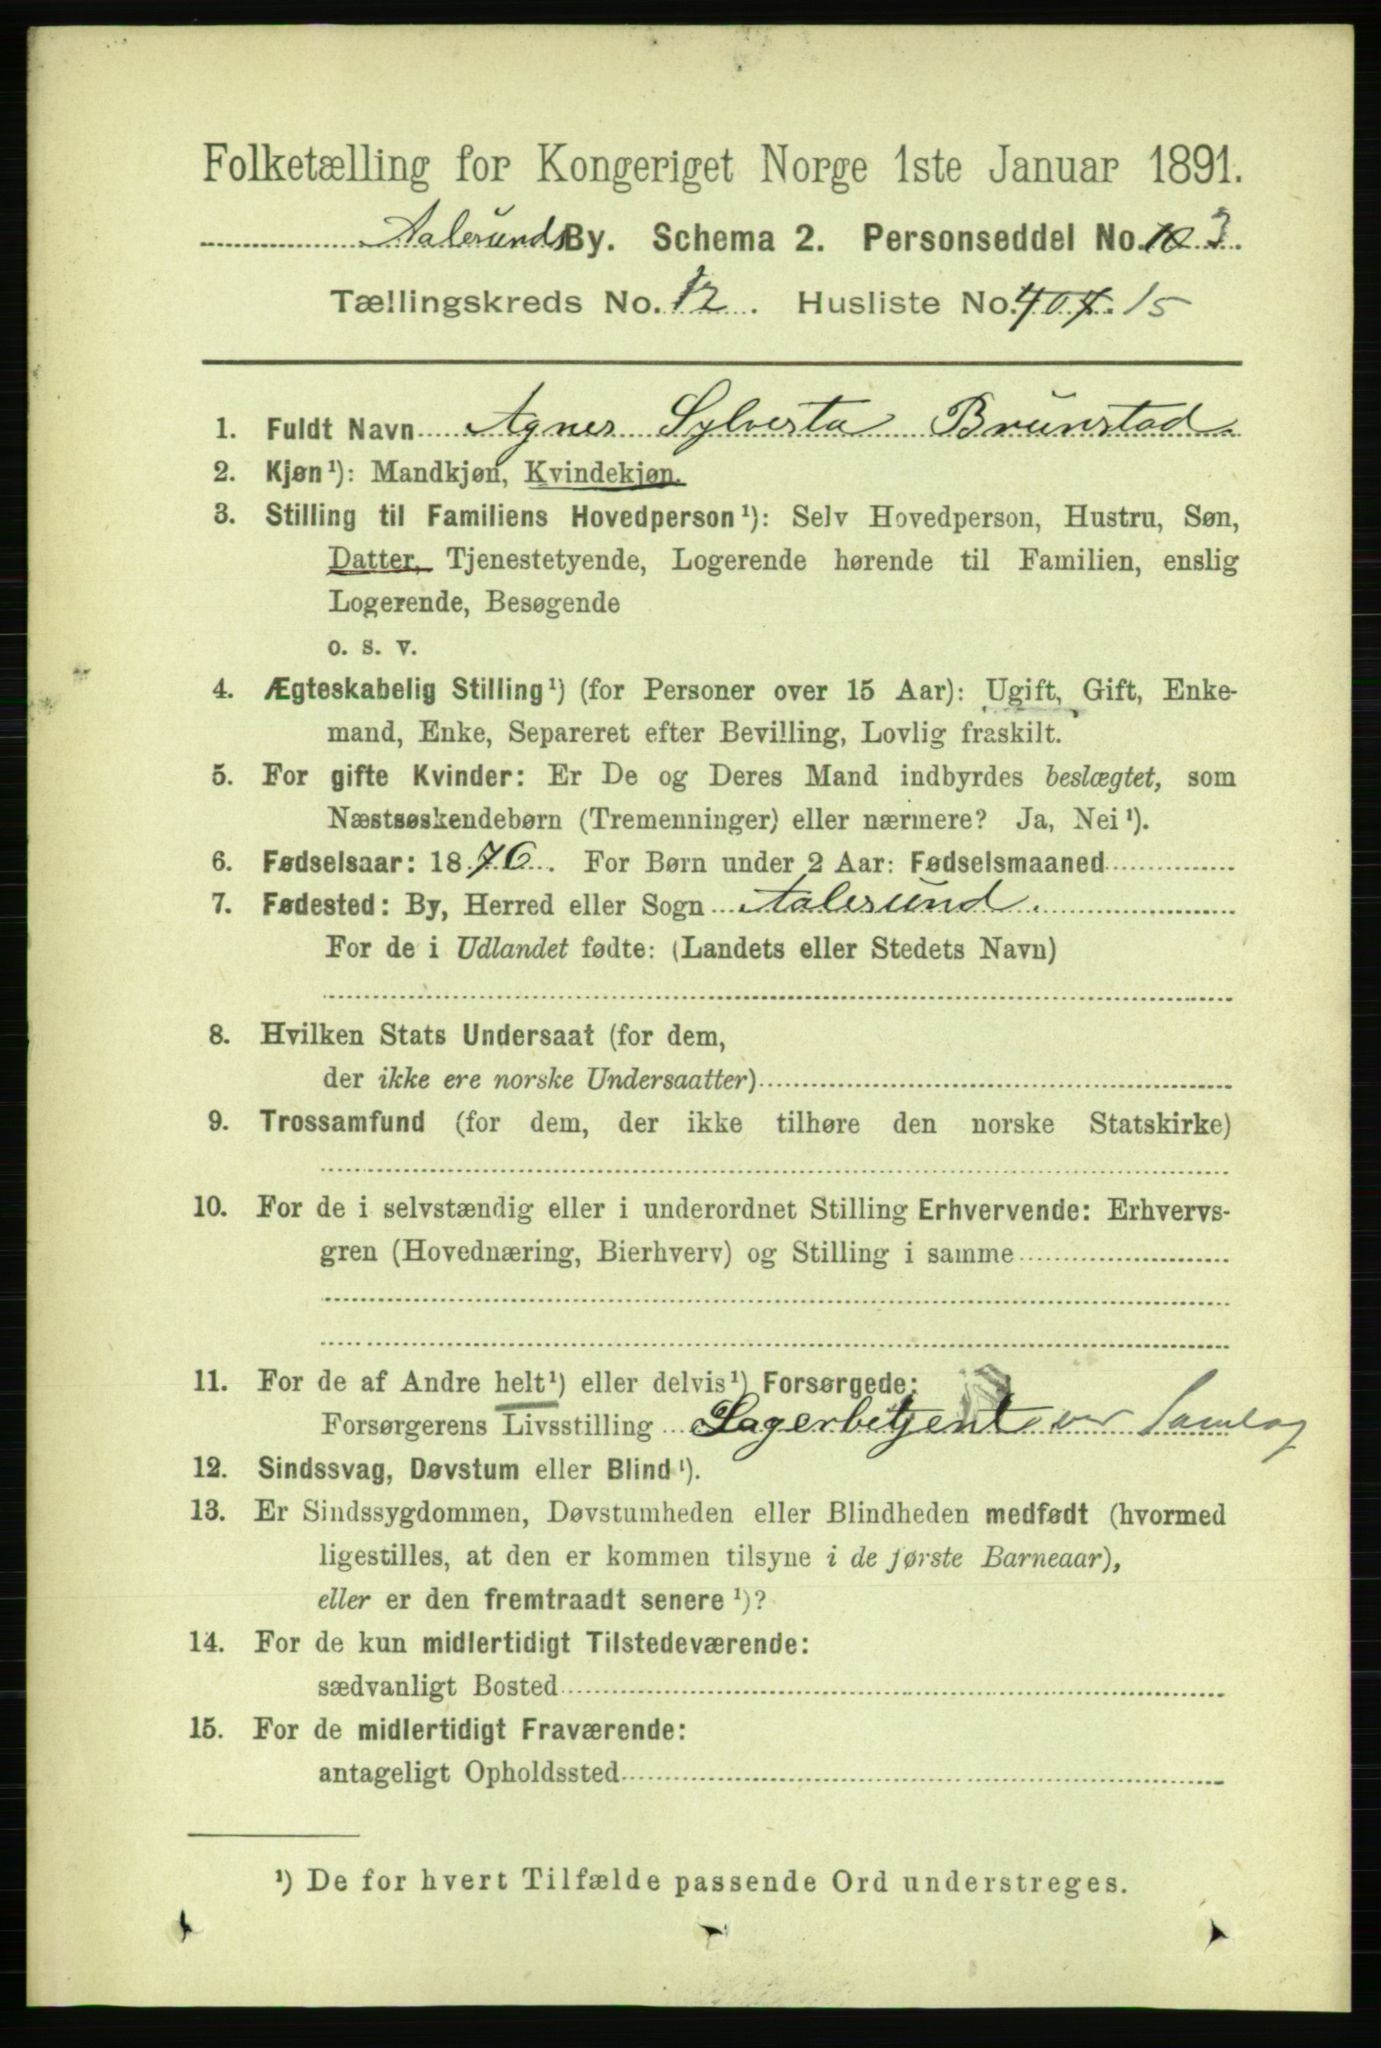 Folketælling for Kongeriget Norge 1ste Januar 1891.
Aalesunds By. Schema 2. Personseddel No. 10 3.
Tællingskreds No. 12. Husliste No. 404. 15
1. Fuldt Navn Agnes Sylvesta Brunstad
2. Kjøn¹): Mandkjøn, Kvindekjøn.
3. Stilling til Familiens Hovedperson¹): Selv Hovedperson, Hustru, Søn,
Datter, Tjenestetyende, Logerende hørende til Familien, enslig
Logerende, Besøgende
o. s. v.
4. Ægteskabelig Stilling¹) (for Personer over 15 Aar): Ugift, Gift, Enke-
mand, Enke, Separeret efter Bevilling, Lovlig fraskilt.
5. For gifte Kvinder: Er De og Deres Mand indbyrdes beslægtet, som
Næstsøskendebørn (Tremenninger) eller nærmere? Ja, Nei¹).
6. Fødselsaar: 1876. For Børn under 2 Aar: Fødselsmaaned
7. Fødested: By, Herred eller Sogn Aalesund.
For de i Udlandet fødte: (Landets eller Stedets Navn)
8. Hvilken Stats Undersaat (for dem,
der ikke ere norske Undersaatter)
9. Trossamfund (for dem, der ikke tilhøre den norske Statskirke)
10. For de i selvstændig eller i underordnet Stilling Erhvervende: Erhvervs-
gren (Hovednæring, Bierhverv) og Stilling i samme
11. For de af Andre helt¹) eller delvis¹) Forsørgede:
Forsørgerens Livsstilling Lagerbetjent ver Samlag
12. Sindssvag, Døvstum eller Blind¹).
13. Er Sindssygdommen, Døvstumheden eller Blindheden medfødt (hvormed
ligestilles, at den er kommen tilsyne i de første Barneaar),
eller er den fremtraadt senere¹)?
14. For de kun midlertidigt Tilstedeværende:
sædvanligt Bosted
15. For de midlertidigt Fraværende:
antageligt Opholdssted
¹) De for hvert Tilfælde passende Ord understreges.